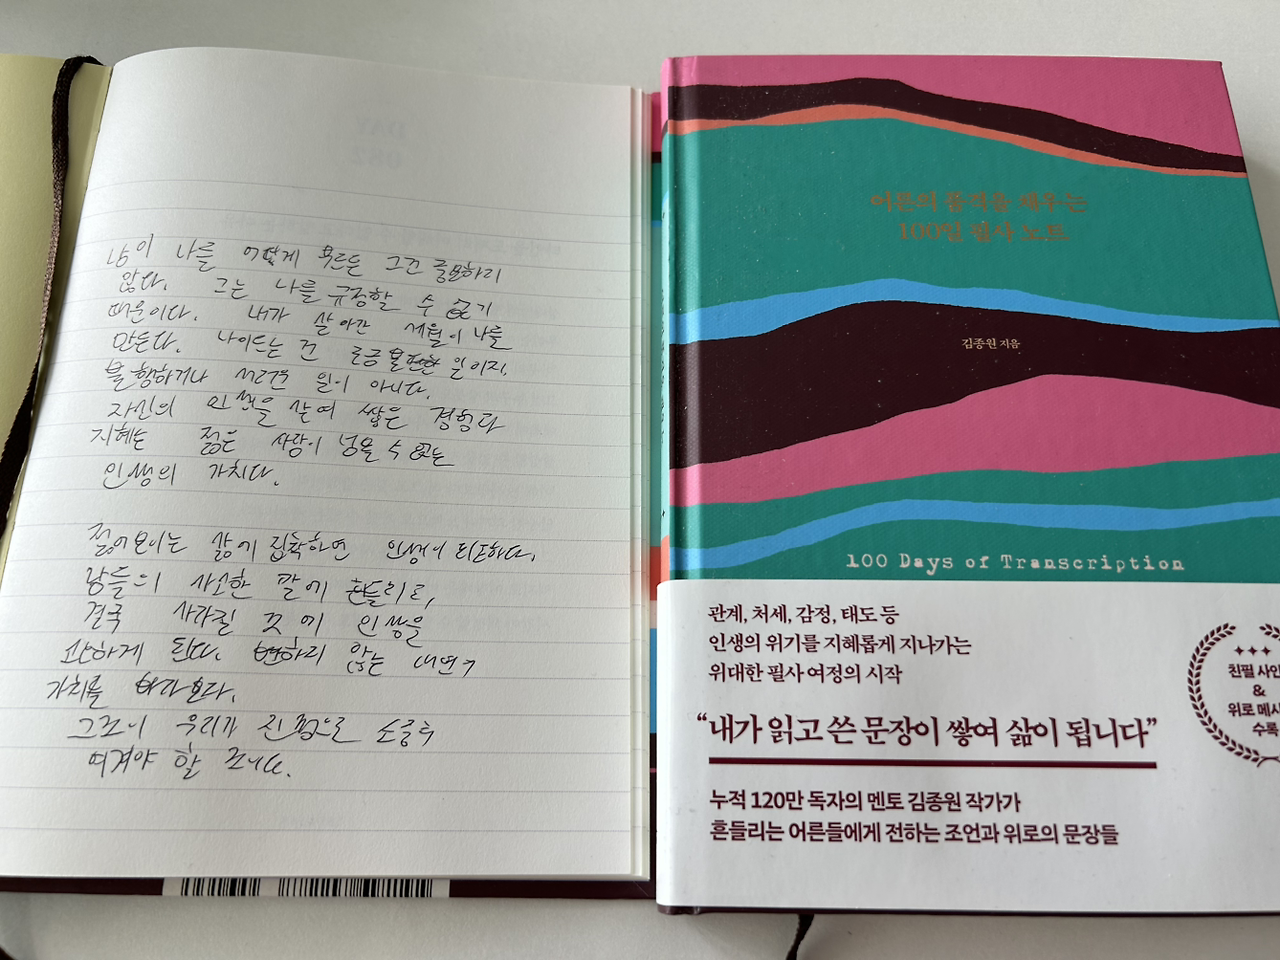 남이 나를 어떻게 부르든 그건 중요하지
않다. 그는 나를 규정할 수 없기
때문이다. 내가 살아간 세월이 나를
만든다. 나이드는 건 조금 불편한 일이지,
불행하거나 서러운 일이 아니다.
자신의 인생을 살며 쌓은 경험과
지혜는 젊은 사람이 넘볼 수 없는
인생의 가치다.
젊어보이는 삶에 집착하면 인생이 피곤하다.
남들의 사소한 말에 흔들리고,
결국 사라질 것에 인생을
소비하게 된다. 변하지 않는 내면의
가치를 바라보라.
그것이 우리가 진정으로 소중히
여겨야 할 것이다.
어른의 품격을 채우는
100일 필사 노트
김종원 지음
100 Days of Transcription
관계, 처세, 감정, 태도 등
인생의 위기를 지혜롭게 지나가는
위대한 필사 여정의 시작
“내가 읽고 쓴 문장이 쌓여 삶이 됩니다”
누적 120만 독자의 멘토 김종원 작가가
흔들리는 어른들에게 전하는 조언과 위로의 문장들
친필 사인
&
위로 메시
수록